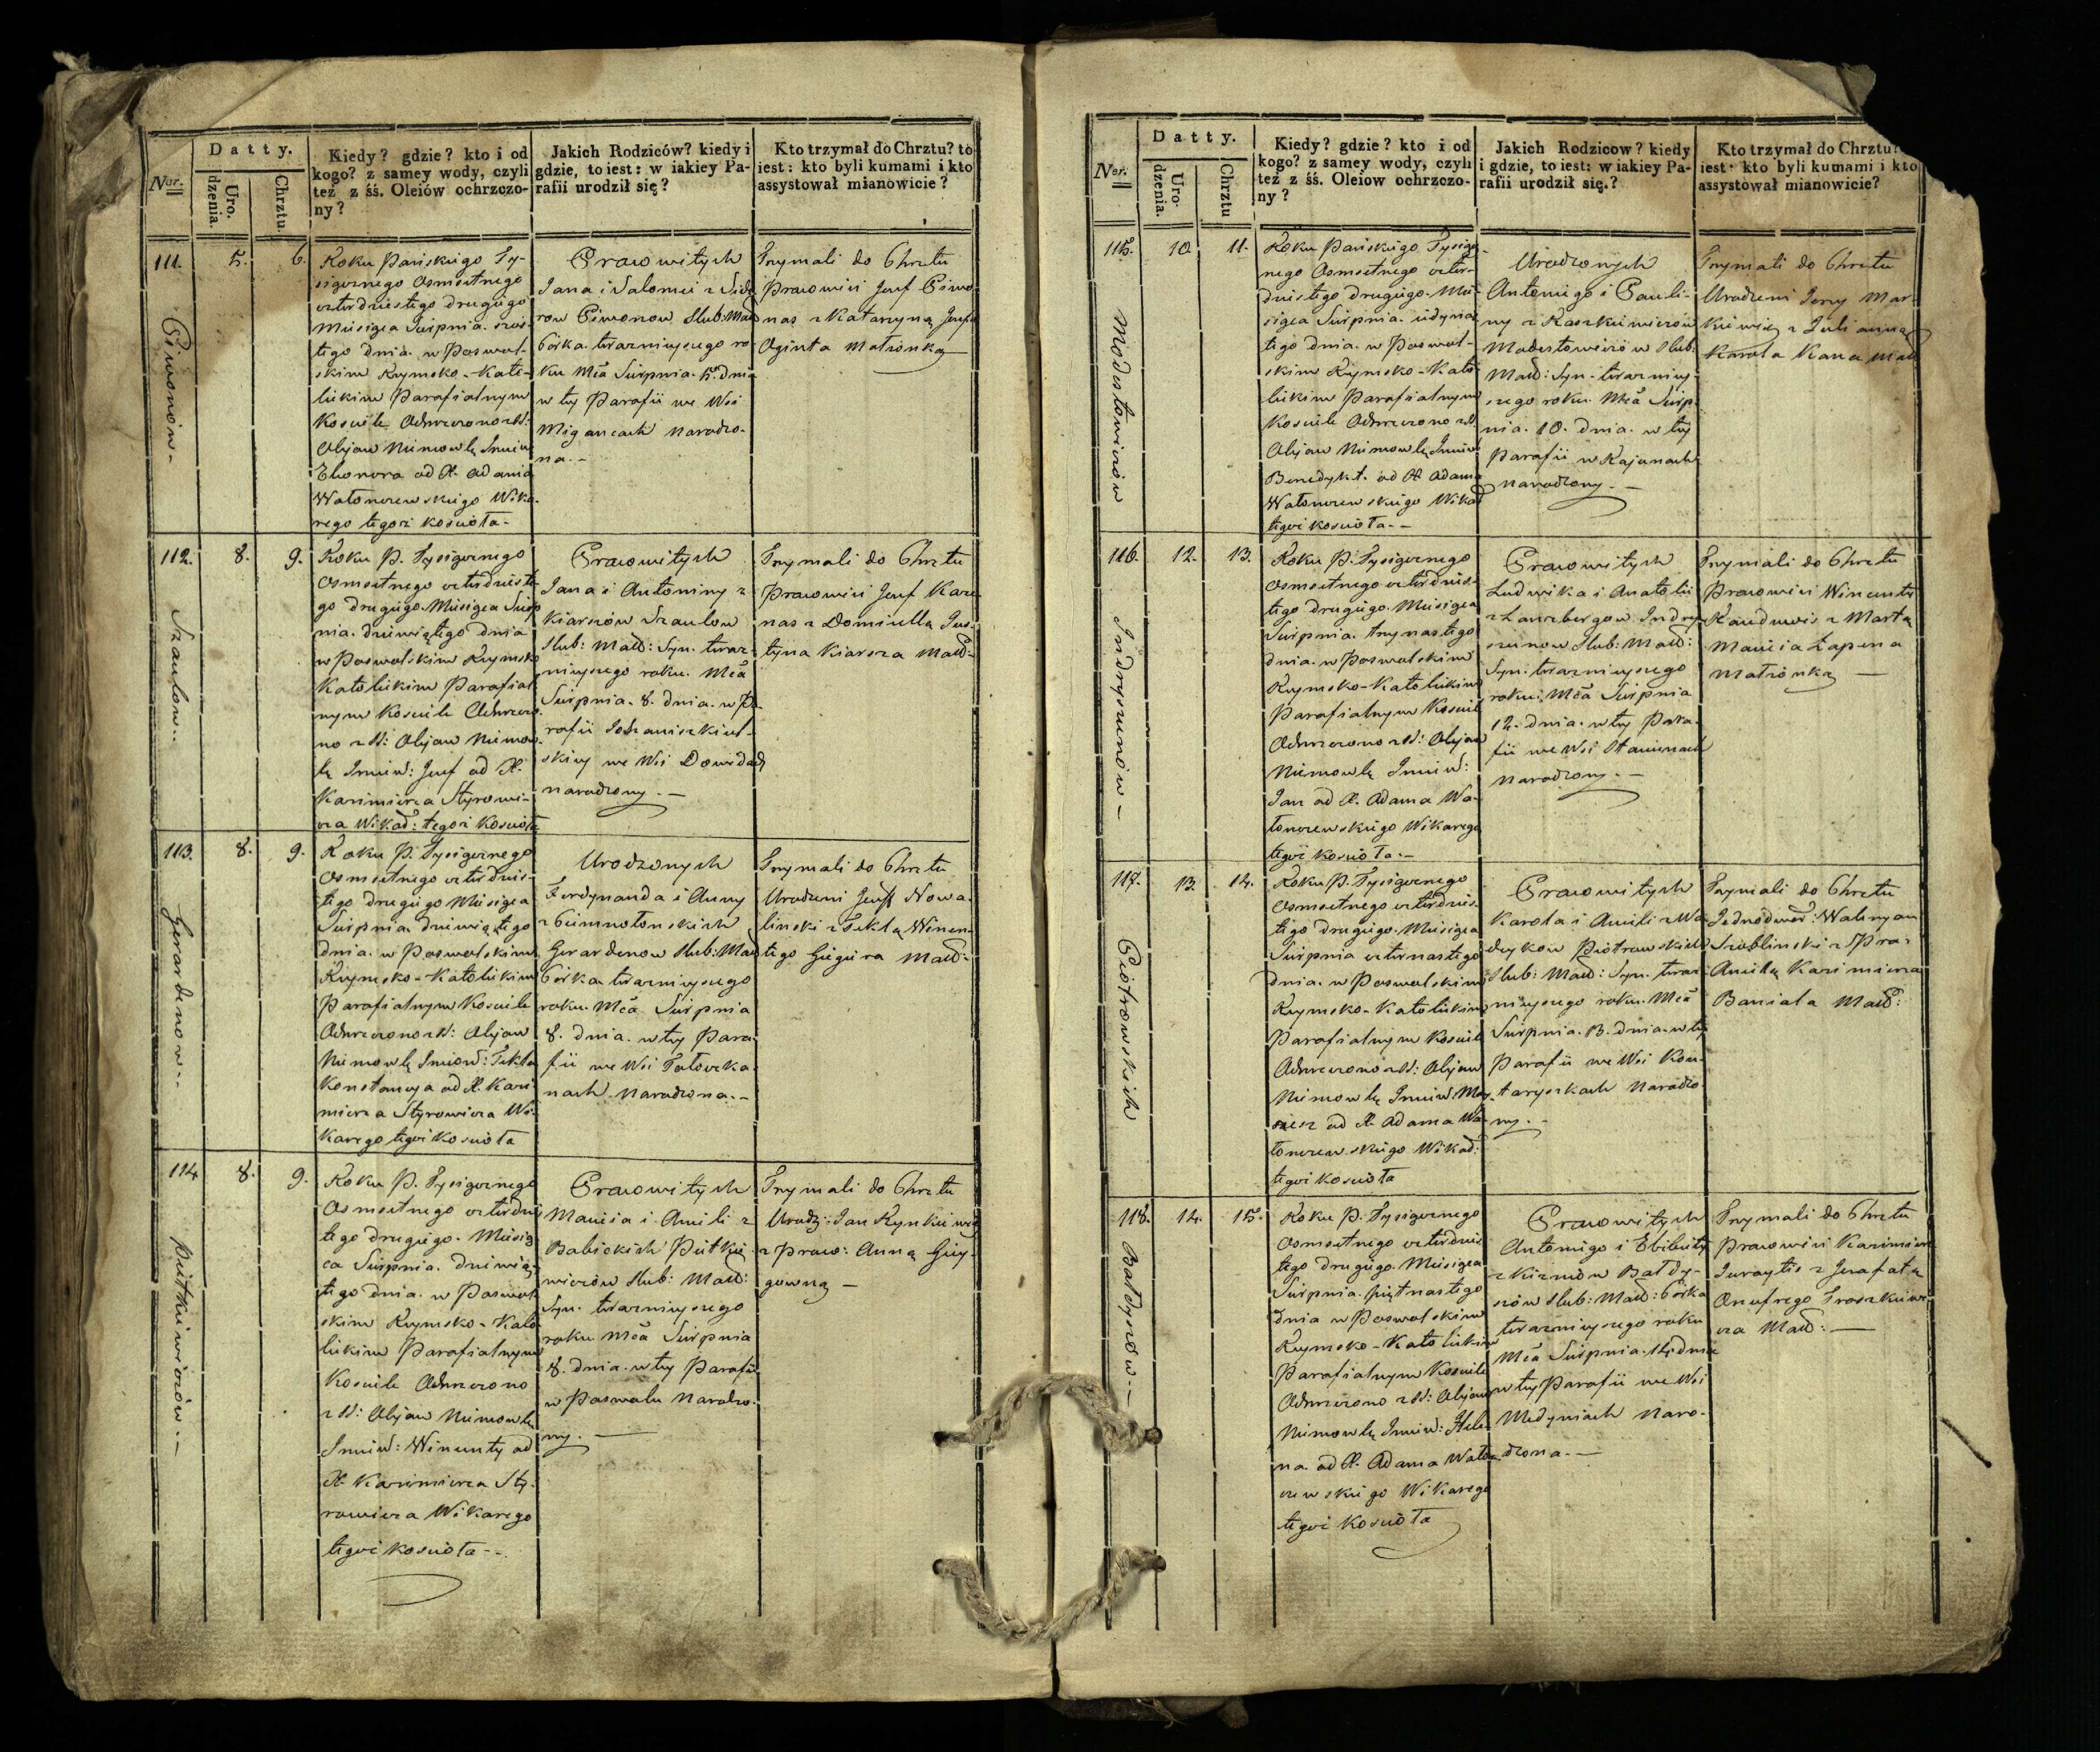 Datty.
Ner.
Uro.
dzenia.
Chrztu.
Kiedy? gdzie? kto i od
kogo? z samey wody, czyli
też z śś. Oleiów ochrzczo-
ny?
Jakich Rodziców? kiedy i
gdzie, to iest: w iakiey Pa-
rafii urodził się?
Kto trzymał do Chrztu? to
iest: kto byli kumami i kto
assystował mianowicie?
111.
Piwonów
5.
6.
Roku Pańskiego Ty-
siącznego Osmsetnego
czterdziestego drugiego
Miesiąca Sierpnia szós-
tego dnia w Poswol-
skim Rzymsko-Kato-
lickim Parafialnym
Kościele Ochrzczono z SS:
Olejow Niemowlę Imieniem
Eleonora od X. Adama
Wałonczewskiego Wika-
rego tegoż kościoła.
Prawowitych
Jana i Salomei z
row Piwonow Slub: Małż
Córka teraźnieyszego ro
ku Mca Sierpnia 5. dnia
w tey Parafii we Wsi
Migancach narodzo-
na.
Trzymali do Chrztu
Pracowici Jozef Piwo
nas z Katarzyną Jozefa
Oginta Małżonką
112.
Szaulow
8.
9.
Roku P. Tysiącznego
Osmsetnego czterdzieste-
go drugiego Miesiąca Sierp
nia dziewiątego dnia
w Poswolskim Rzymsko
Katolickim Parafial
nym Kościele Ochrzczo-
no z SS: Olejow Niemow
lę Imieniem: Jozef od X.
Kazimierza Styrowi-
cza Wikar: tegoż Kościoła
Prawowitych
Jana i Antoniny z
Kiarszów Szaulow
Slub: Małż: Syn teraz-
nieyszego roku Mca
Sierpnia 8. dnia w Pa-
rafii Johaniszkiel-
skiey we Wsi
narodzony.
Trzymali do Chrztu
Pracowici Jozef Kare
nas z Domicellą Jus-
tyna Kiarsza Małż
113.
Gerardenow
8.
9.
Roku P. Tysiącznego
Osmsetnego czterdzies-
tego drugiego Miesiąca
Sierpnia dziewiątego
dnia w Poswolskim
Rzymsko-Katolickim
Parafialnym Kościele
Ochrzczono z SS: Olejow
Niemowlę Imieniem: Tekla
Konstancya od X. Kazi
mierza Styrowicza Wi-
karego tegoż Kościoła
Urodzonych
Ferdynanda i Anny
z
Gerardenow Slub: Małż
Córka teraźnieyszego
roku Mca Sierpnia
8. dnia w tey Para
fii we Wsi
nach Narodzona.
Trzymali do Chrztu
Urodzeni Jozef Nowa-
linski z Teklą Wincen-
tego Giegiera Małż:
114
Pietkiewiczów
8.
9.
Roku P. Tysiącznego
Osmsetnego czterdzies
tego drugiego Miesią
ca Sierpnia dziewią-
tego dnia w Poswol
skim Rzymsko-Kato
lickim Parafialnym
Kościele Ochrzczono
z SS: Olejow Niemowlę
Imieniem: Wincenty od
X. Kazimierza Sty-
rowicza Wikarego
tegoż kościoła
Prawowitych
Macieja i Anieli z
Babickich Pietkie-
wiczów Slub: Małż:
Syn teraźnieyszego
roku Mca Sierpnia
8. dnia w tey Parafii
w Poswolu Narodzo-
ny.
Trzymali do Chrztu
Urodz: Jan Rynkiewicz
z Praw: Anną
Datty.
Ner.
Uro-
dzenia.
Chrztu
Kiedy? gdzie? kto i od
kogo? z samey wody, czyli
też z śś. Oleiow ochrzczo-
ny?
Jakich Rodzicow? kiedy
i gdzie, to iest: w iakiey Pa-
rafii urodził się.?
Kto trzymał do Chrztu?
iest: kto byli kumami i kto
assystował mianowicie?
115.
Modestowiczów
10.
11.
Roku Pańskiego Tysiącz-
nego Osmsetnego czter-
dziestego drugiego Mie-
siąca Sierpnia iedynas
tego dnia w Poswol-
skim Rzymsko-Kato
lickim Parafialnym
Kościele Ochrzczono z SS.
Olejow Niemowlę Imieniem
Benedykt od X Adama
Wałonczewskiego Wikar
tegoż kościoła.
Urodzonych
Antoniego i Pauli-
ny z Raszkiewiczow
Modestowiczów Slub:
Małż: Syn teraźniey-
szego roku Mca Sierp-
nia 10. dnia w tey
Parafii w Kajanach
narodzony.
Trzymali do Chrztu
Urodzeni Jerzy Mar-
kiewicz z Julianną
Karola Kana Małż
116.
Indryszunów
12.
13.
Roku P. Tysiącznego
Osmsetnego czterdzies-
tego drugiego Miesiąca
Sierpnia trzynastego
dnia w Poswolskim
Rzymsko-Katolickim
Parafialnym Kościele
Ochrzczono z SS: Olejow
Niemowlę Imieniem:
Jan od X. Adama Wa-
łonczewskiego Wikarego
tegoż kościoła.
Prawowitych
Ludwika i Anatolii
z Lanzbergow Indry
szunow Slub: Małż:
Syn teraźnieyszego
roku Mca Sierpnia
12. dnia w tey Para-
fii we Wsi Staniunach
narodzony.
Trzymali do Chrztu
Pracowici Wincenty
Rauduwis z Martą
Macieia Łapena
Małżonką
117.
Piotrowskich
13.
14.
Roku P. Tysiącznego
Osmsetnego czterdzies-
tego drugiego Miesiąca
Sierpnia czternastego
dnia w Poswolskim
Rzymsko-Katolickim
Parafialnym Kościele
Ochrzczono z SS: Olejow
Niemowlę Imieniem Moy-
żesz od X. Adama Wa-
łonczewskiego Wikar:
tegoż kościoła
Prawowitych
Karola i Anieli z Wa
dykow Piotrowskich
Slub: Małż: Syn teraz
nieyszego roku Mca
Sierpnia 13. dnia w tey
Parafii we Wsi Kon-
staryszkach Narodzo
ny.
Trzymali do Chrztu
Jednodwor: Waleryan
Szablinski z Pra:
Anielą Kazimierza
Baniala Małż:
118.
Bałdyszów
14.
15.
Roku P. Tysiącznego
Osmsetnego czterdzies
tego drugiego Miesiąca
Sierpnia piętnastego
dnia w Poswolskim
Rzymsko-Katolickim
Parafialnym Kościele
Ochrzczono z SS: Olejow
Niemowlę Imieniem: Hele-
na od X. Adama Wało-
czewskiego Wikarego
tegoż Kościoła
Prawowitych
Antoniego i Elżbiety
z Bałdy-
szów Slub: Małż: Córka
teraźnieyszego roku
Mca Sierpnia 14. dnia
w tey Parafii we Wsi
Medyniach Naro-
dzona.
Trzymali do Chrztu
Pracowici Kazimierz
Juraytis z Jozafatą
Onufrego Proszkiewi-
cza Małż: